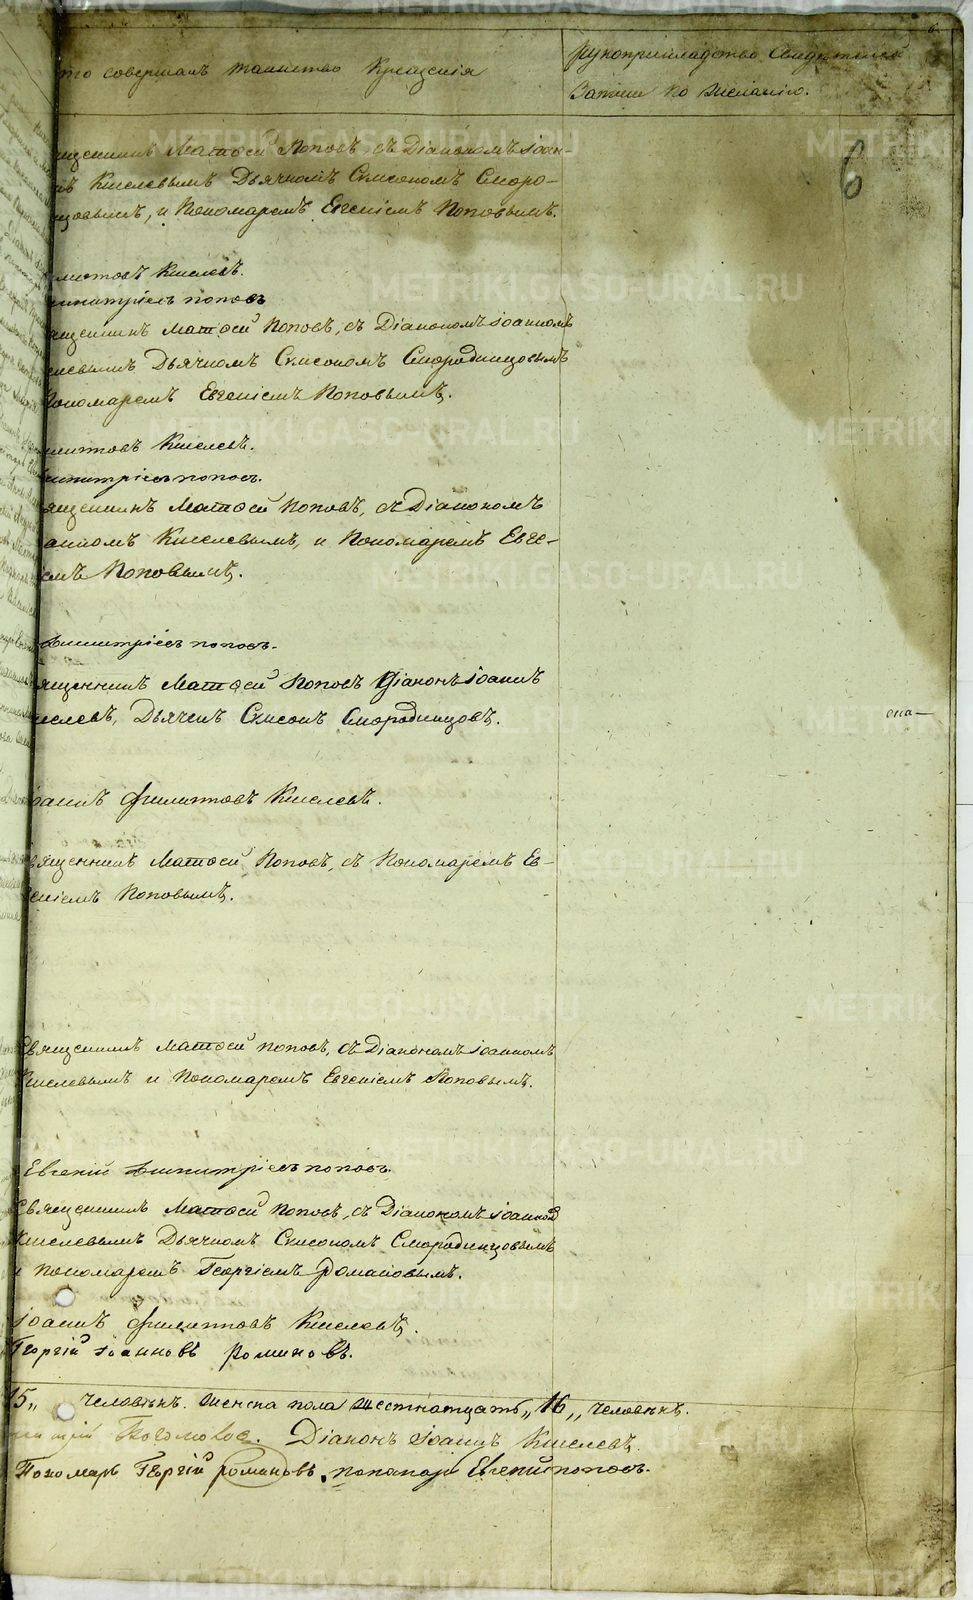 кто совершалъ таинство Крещенія
рукоприкладство Свидѣтелей
записи по желанію.
6
священникъ Матѳей Поповъ, съ Діакономъ Іоан-
Киселевымъ Дьячкомъ Симеономъ Сморо-
динцовымъ, и Пономаремъ Евгеніемъ Поповымъ.
Филиповъ Киселевъ.
Димитріевъ поповъ
священникъ Матѳей Поповъ, съ Діакономъ Іоанномъ
Киселевымъ Дьячкомъ Симеономъ Смородинцовымъ
Пономаремъ Евгеніемъ Поповымъ.
Филиповъ Киселевъ.
Димитріевъ поповъ.
священникъ Матѳей Поповъ, съ Діакономъ
Іоанномъ Киселевымъ, и Пономаремъ Евге-
ніемъ Поповымъ.
Димитріевъ поповъ.
священникъ Матѳей Поповъ Діаконъ Іоаннъ
Киселевъ, Дьячекъ Симеонъ Смородинцовъ.
Іоаннъ Филиповъ Киселевъ.
священникъ Матѳей Поповъ, съ Пономаремъ Ев-
геніемъ Поповымъ.
Священникъ Матѳей Поповъ, съ Діакономъ Іоанномъ
Киселевымъ и Пономаремъ Евгеніемъ Поповымъ.
Евгеній Димитріевъ поповъ.
Священникъ Матѳей Поповъ, съ Діакономъ Іоанном
Киселевымъ Дьячкомъ Симеономъ Смородинцовымъ
и пономаремъ Георгіемъ романовымъ.
Іоаннъ Филиповъ Киселевъ.
Георгій Іоанновъ романовъ.
15„ человѣкъ. женска пола шестнатцать „16„ человѣкъ.
Діаконъ Іоаннъ Киселевъ
Пономарь Георгій романовъ. понамарь Евгений поповъ.
METRIKI.GASO-URAL.RU